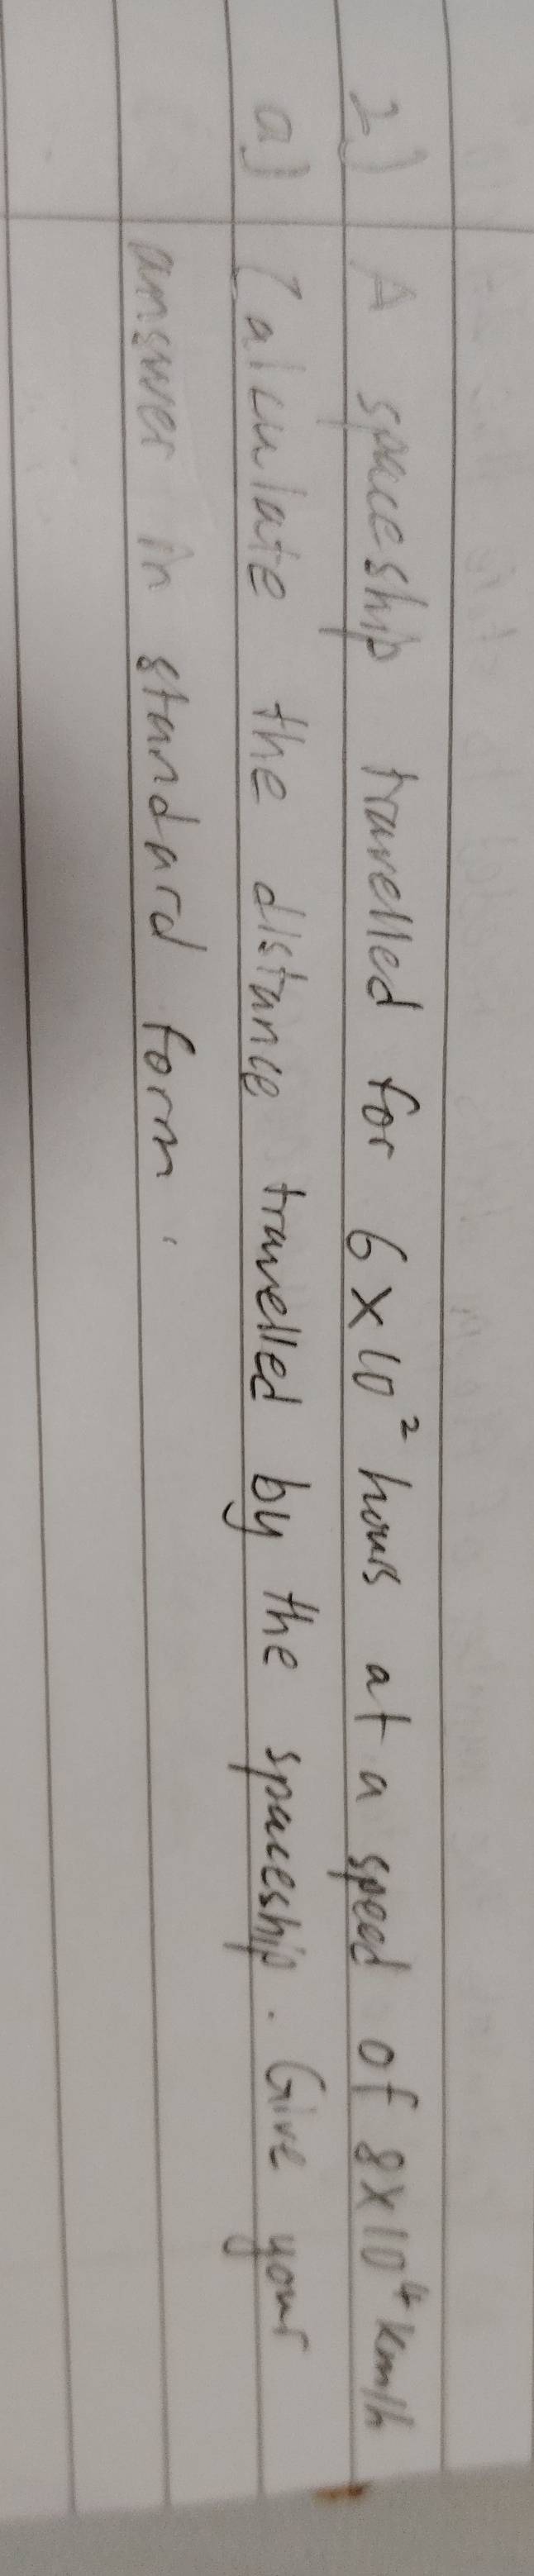 2) A spaceship travelled for 6 × 10² hours at a speed of 8×10⁴ km/h
a) Calculate the distance travelled by the spaceship. Give your
answer in standard form.